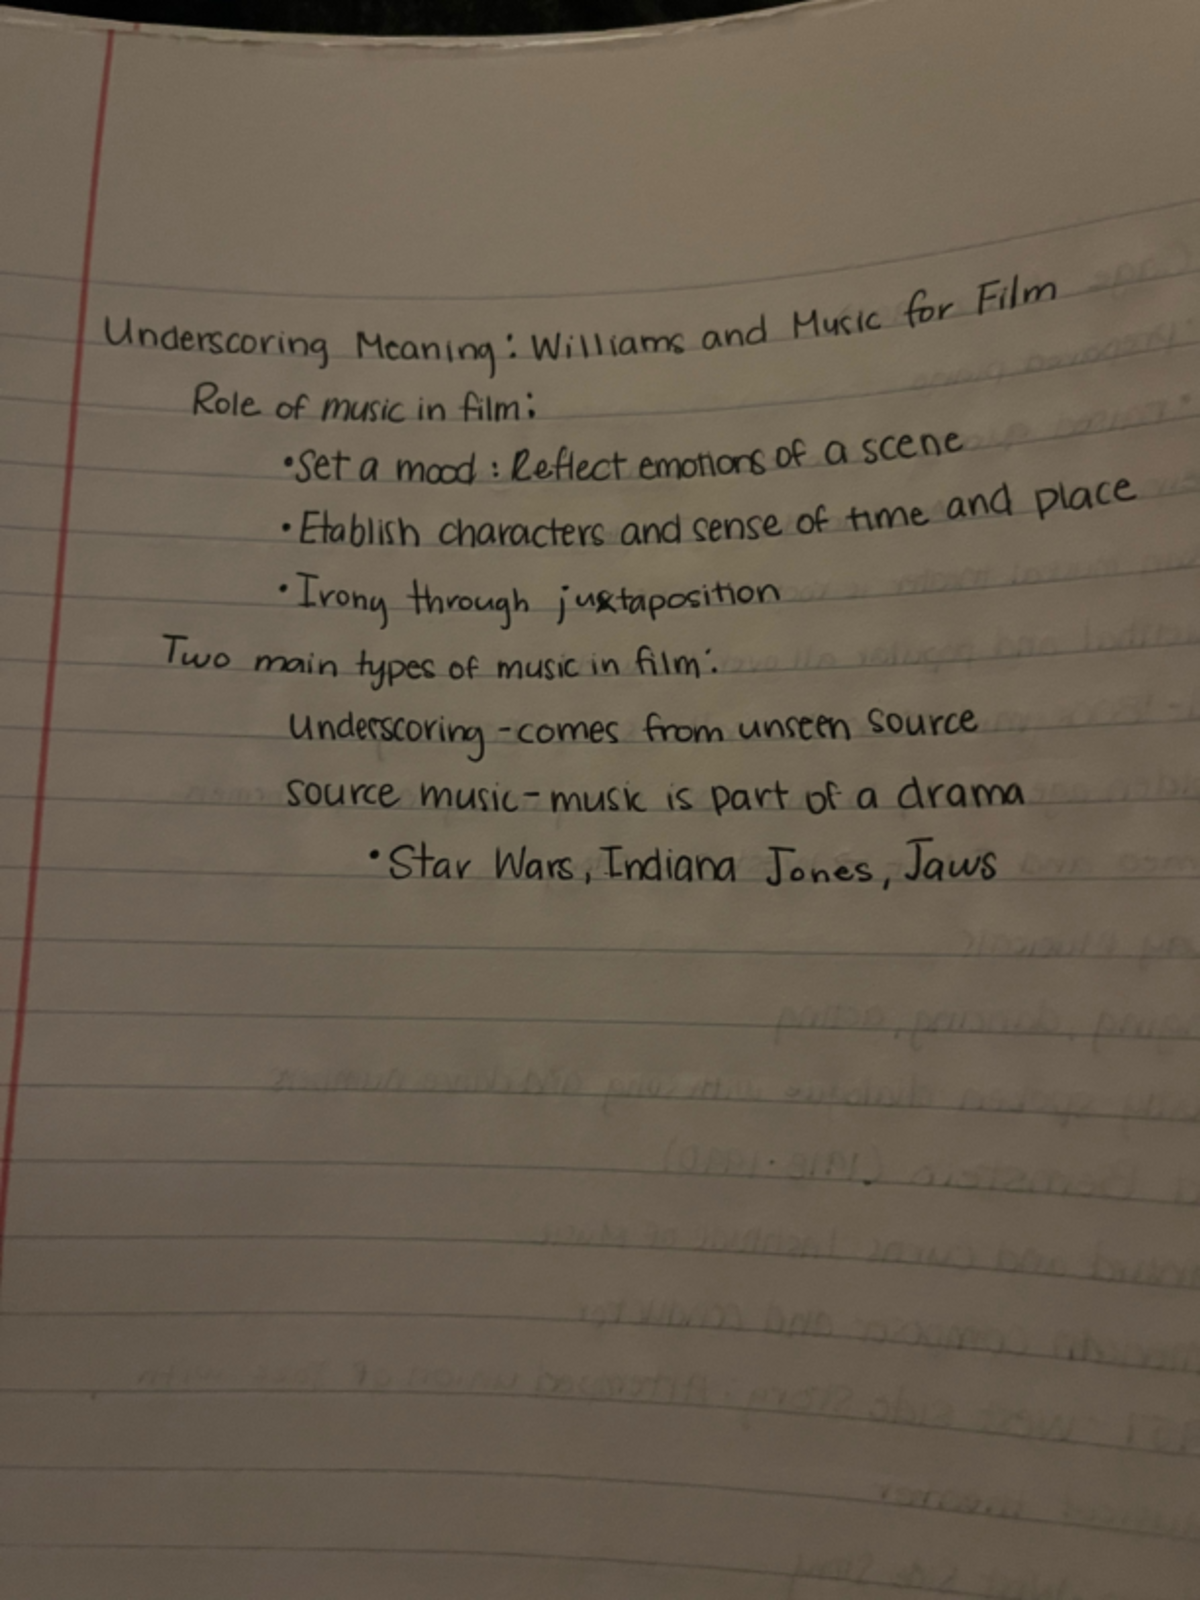 Underscoring Meaning: Williams and Music for Film
Role of music in film:
•Set a mood: Reflect emotions of a scene
•Etablish characters and sense of time and place
•Irony through juxtaposition
Two main types of music in film:
Underscoring-comes from unseen source
source music-music is part of a drama
•Star Wars, Indiana Jones, Jaws